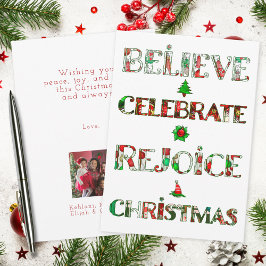 Wishing you
peace, joy, and
this Christmas
and always
Love,
Elijah &
BELIEVE
CELEBRATE
REJOICE
CHRISTMAS